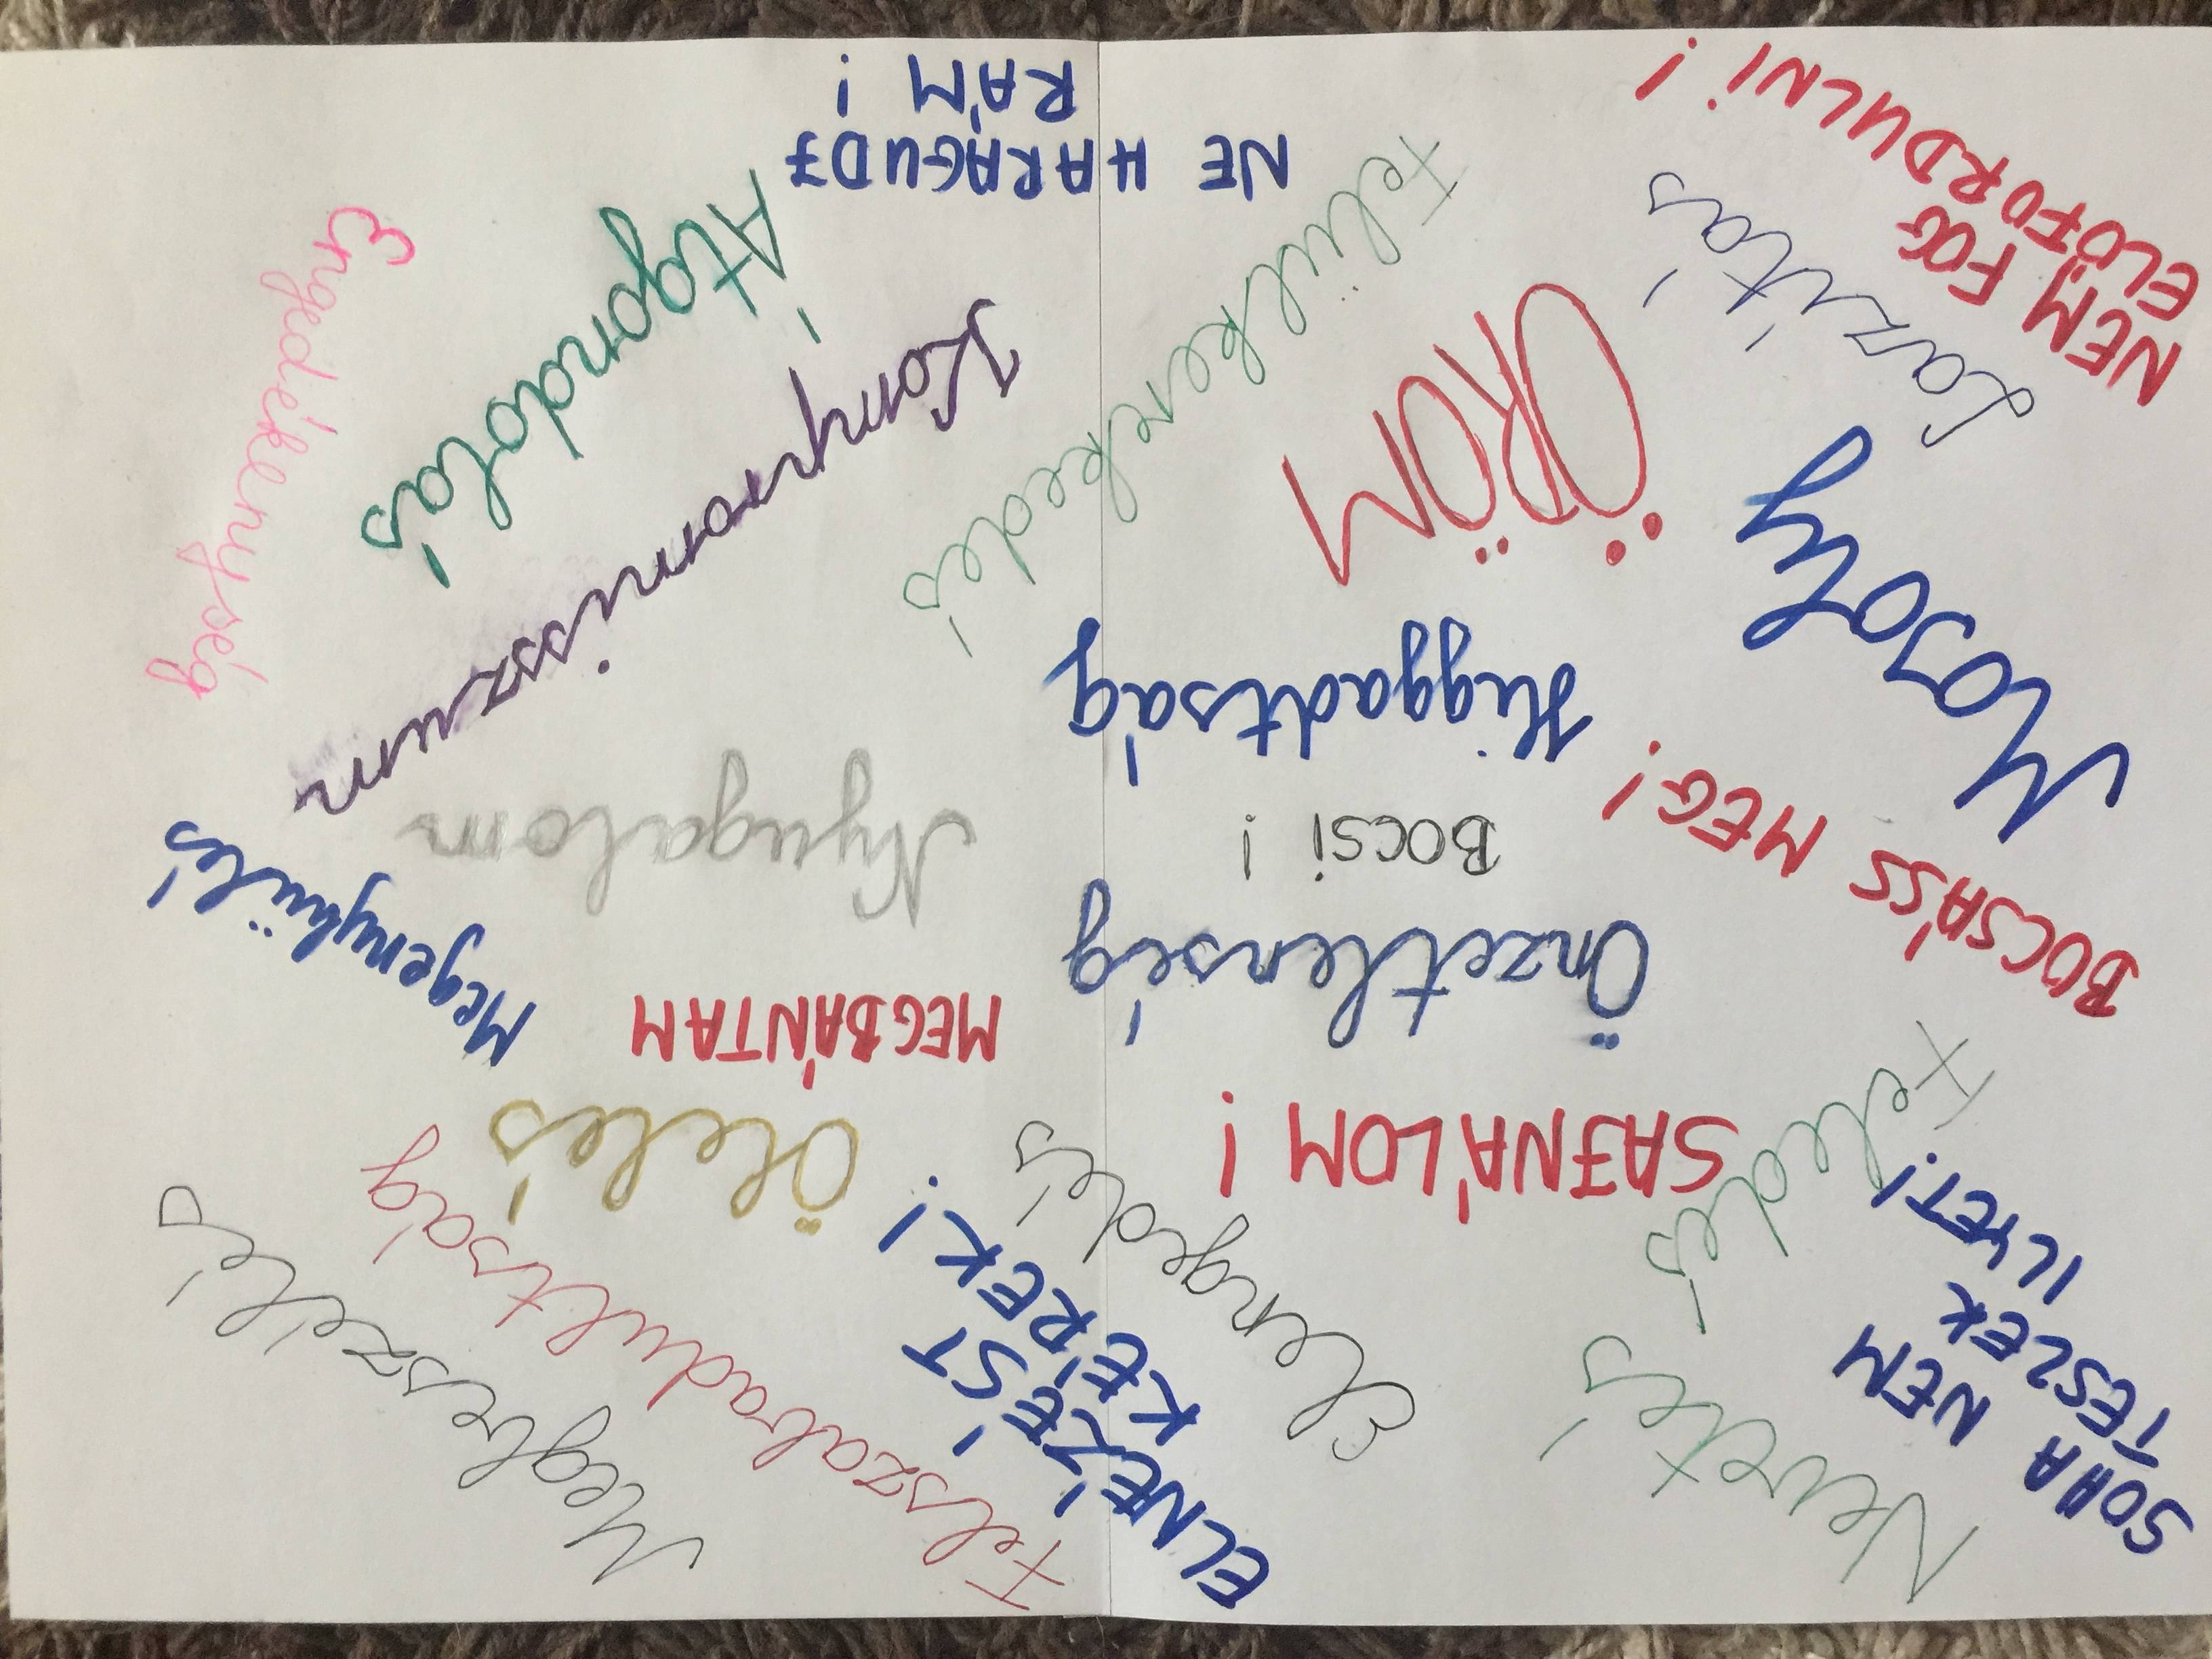 SOHA NEM
TESZEK
ILYET!
Nevetés
Feledés
Elengedés
ELNÉZÉST
KÉREK!
Felszabadultság
Megbeszélés
SAJNÁLOM!
Ölelés
BOCSÁSS MEG!
Önzetlenség
MEGBÁNTAM
Megenyhülés
BOCSI!
Nyugalom
Mosoly
Higgadtság
Kompromisszum
ÖRÖM
Felülkerekedés
Átgondolás
Engedékenység
Lazítás
NEM FOG
ELŐFORDULNI!
NE HARAGUDJ
RÁM!